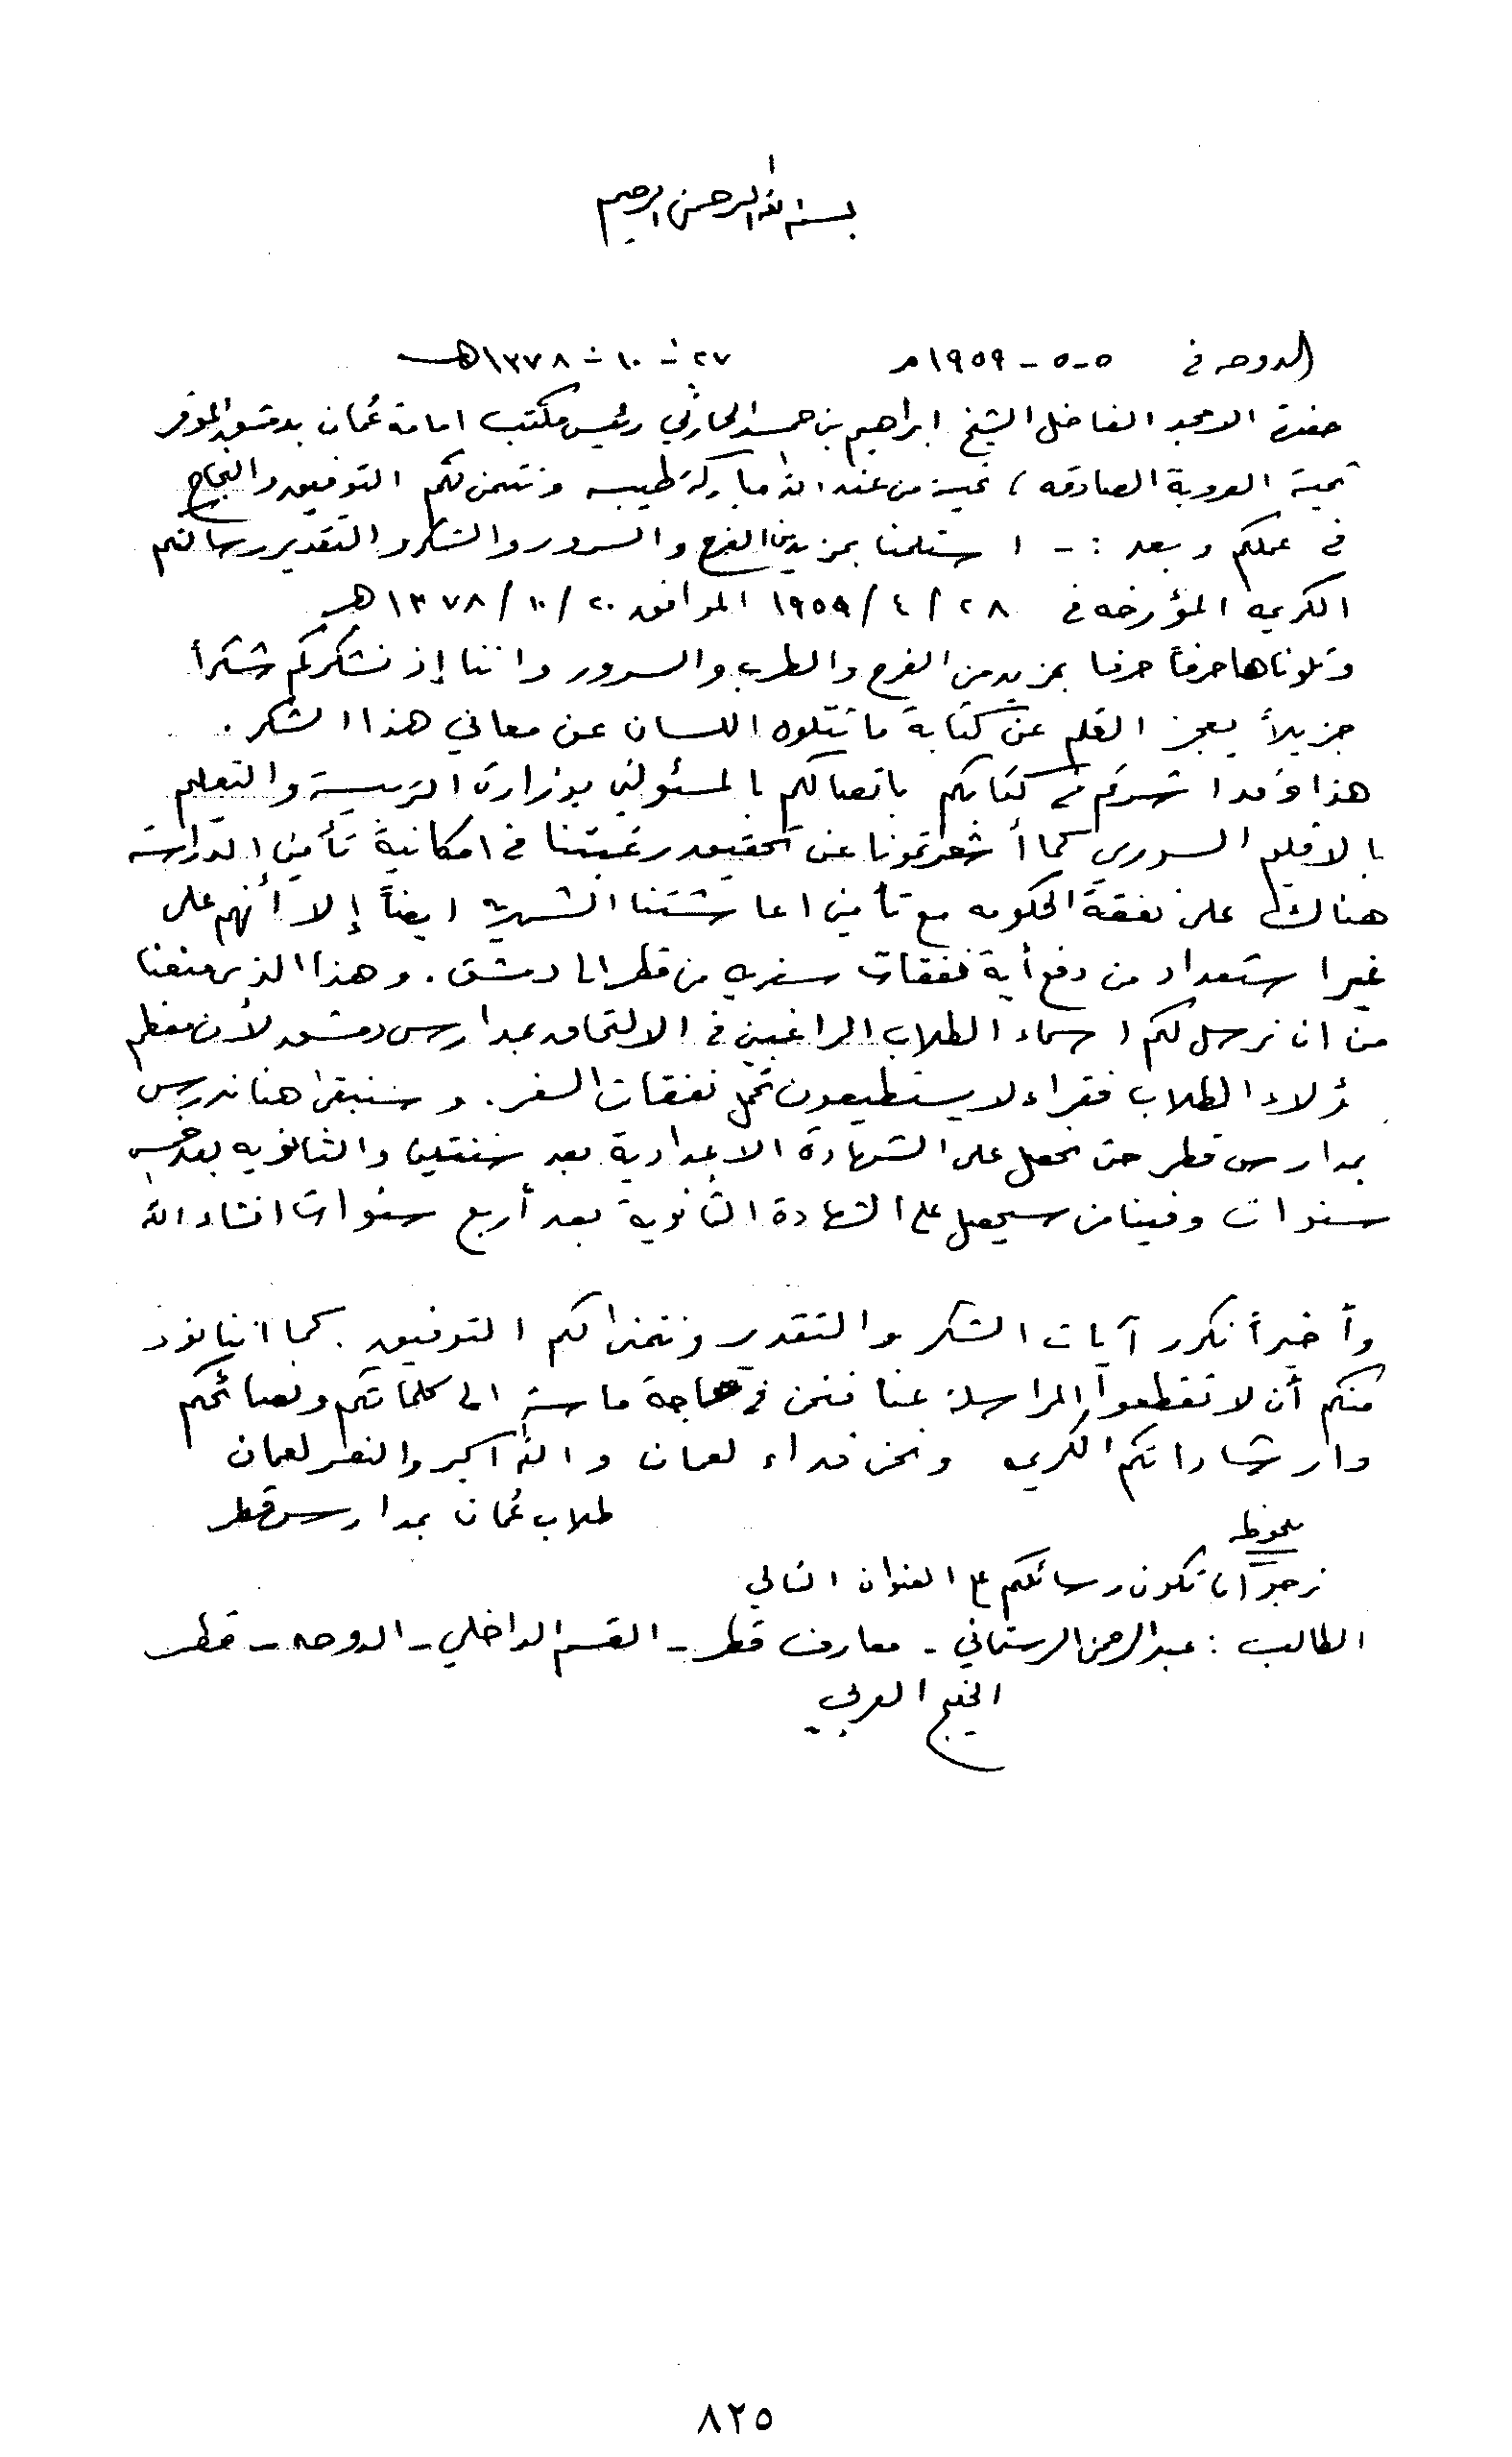 بسم الله الرحمن الرحيم
الدوحه في ٥-٥-١٩٥٩م ٢٧-١٠-١٣٧٨هـ
حضرة الامجد الفاضل الشيخ ابراهيم بن حمد الحارثي رئيس مكتب امامة عُمان بدمشق الموقر
تحية العروبة الصادقه، تحية من عند الله مباركة طيبه ونتمنى لكم التوفيق والنجاح
في عملكم وبعد :- استلمنا بمزيد من الفرح والسرور والشكر والتقدير رسالتكم
الكريمه المؤرخه في ٢٨/٤/١٩٥٩ الموافق ٢٠/١٠/١٣٧٨هـ
وتلوناها حرفاً حرفا بمزيد من الفرح والطرب والسرور واننا إذ نشكركم شكراً
جزيلاً يعجز القلم عن كتابة ما تتلوه اللسان عن معاني هذا الشكر .
هذا وقد اشرتم في كتابكم باتصالكم بالمسئولين بوزارة التربية والتعليم
بالاقليم السوري كما أشعرتمونا عن تحقيق رغبتنا في امكانية تأمين الدراسة
هناك على نفقة الحكومه مع تأمين اعاشتنا الشهريه ايضاً إلا أنهم على
غير استعداد من دفع أية نفقات سفريه من قطر الى دمشق . وهذا الذي منعنا
من ان نرسل لكم اسماء الطلاب الراغبين في الالتحاق بمدارس دمشق لأن معظم
ؤلاء الطلاب فقراء لا يستطيعون تحمل نفقات السفر . وسنبقى هنا ندرس
بمدارس قطر حتى نحصل على الشهادة الاعدادية بعد سنتين والثانويه بعد خمس
سنوات وفينا من سيحصل على الشهادة الثانوية بعد أربع سنوات انشاء الله
وأخيراً نكرر آيات الشكر والتقدير ونتمنى لكم التوفيق . كما اننا نود
منكم أن لا تقطعوا المراسلة عنا فنحن في حاجة ماسة الى كلماتكم ونصائحكم
وارشاداتكم الكريمه ونحن فداء لعمان والله اكبر والنصر لعمان
طلاب عُمان بمدارس قطر
ملحوظه
نرجو ان تكون رسائلكم على العنوان التالي
الطالب : عبدالرحمن الرستماني - معارف قطر - القسم الداخلي - الدوحه - قطر
الخليج العربي
٨٢٥